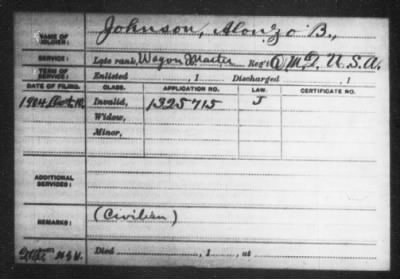 NAME OF SOLDIER: Johnson, Alonzo B.,
SERVICE: Late rank, Wagon Master Reg't Q M D, U.S.A.
TERM OF SERVICE: Enlisted , 1 Discharged , 1
DATE OF FILING. CLASS. APPLICATION NO. LAW. CERTIFICATE NO.
1904, Oct. Invalid, 1325715 J
Widow,
Minor,
ADDITIONAL SERVICES:
REMARKS: (Civilian)
Died , 1 , at